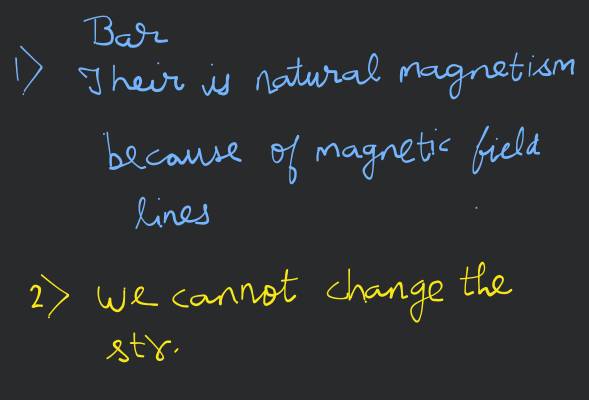 Bar
1) Their is natural magnetism
because of magnetic field
lines
2) We cannot change the
str.